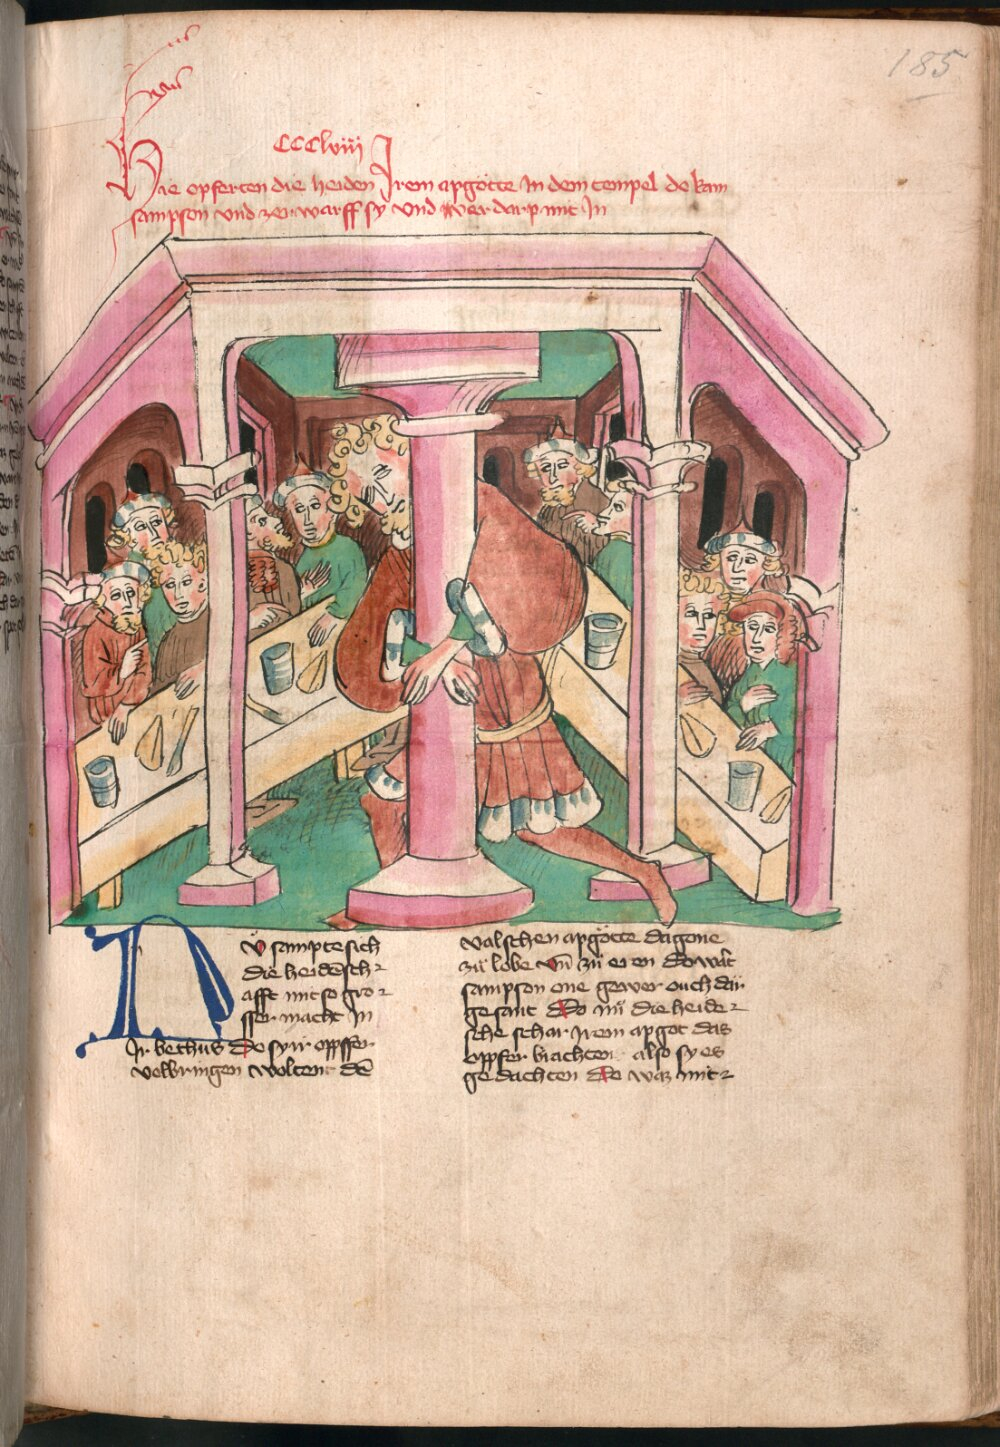 185
CCClviij
Hie opferten die heiden Jrem apgötte In dem tempel do kam
sampson vnd zerwarff sy vnd verdarp mit In
NV sampte sich
die heidēsch
afft mit so gro
sser macht In
Jr bethus Do sy ir opffer
velbringen wolten dē
valschen apgötte dagone
zü lobe vn̄ zü eren Do wart
sampson one gewer ouch dar
gesant Do nü die heide
sche schar Jrem apgot das
oppfer brachten also sy es
gedachten Do waz mit